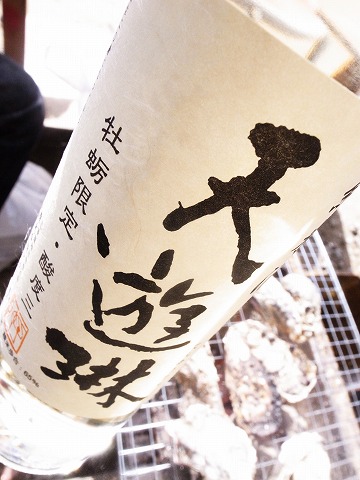 天遊琳
牡蛎限定・酸度三